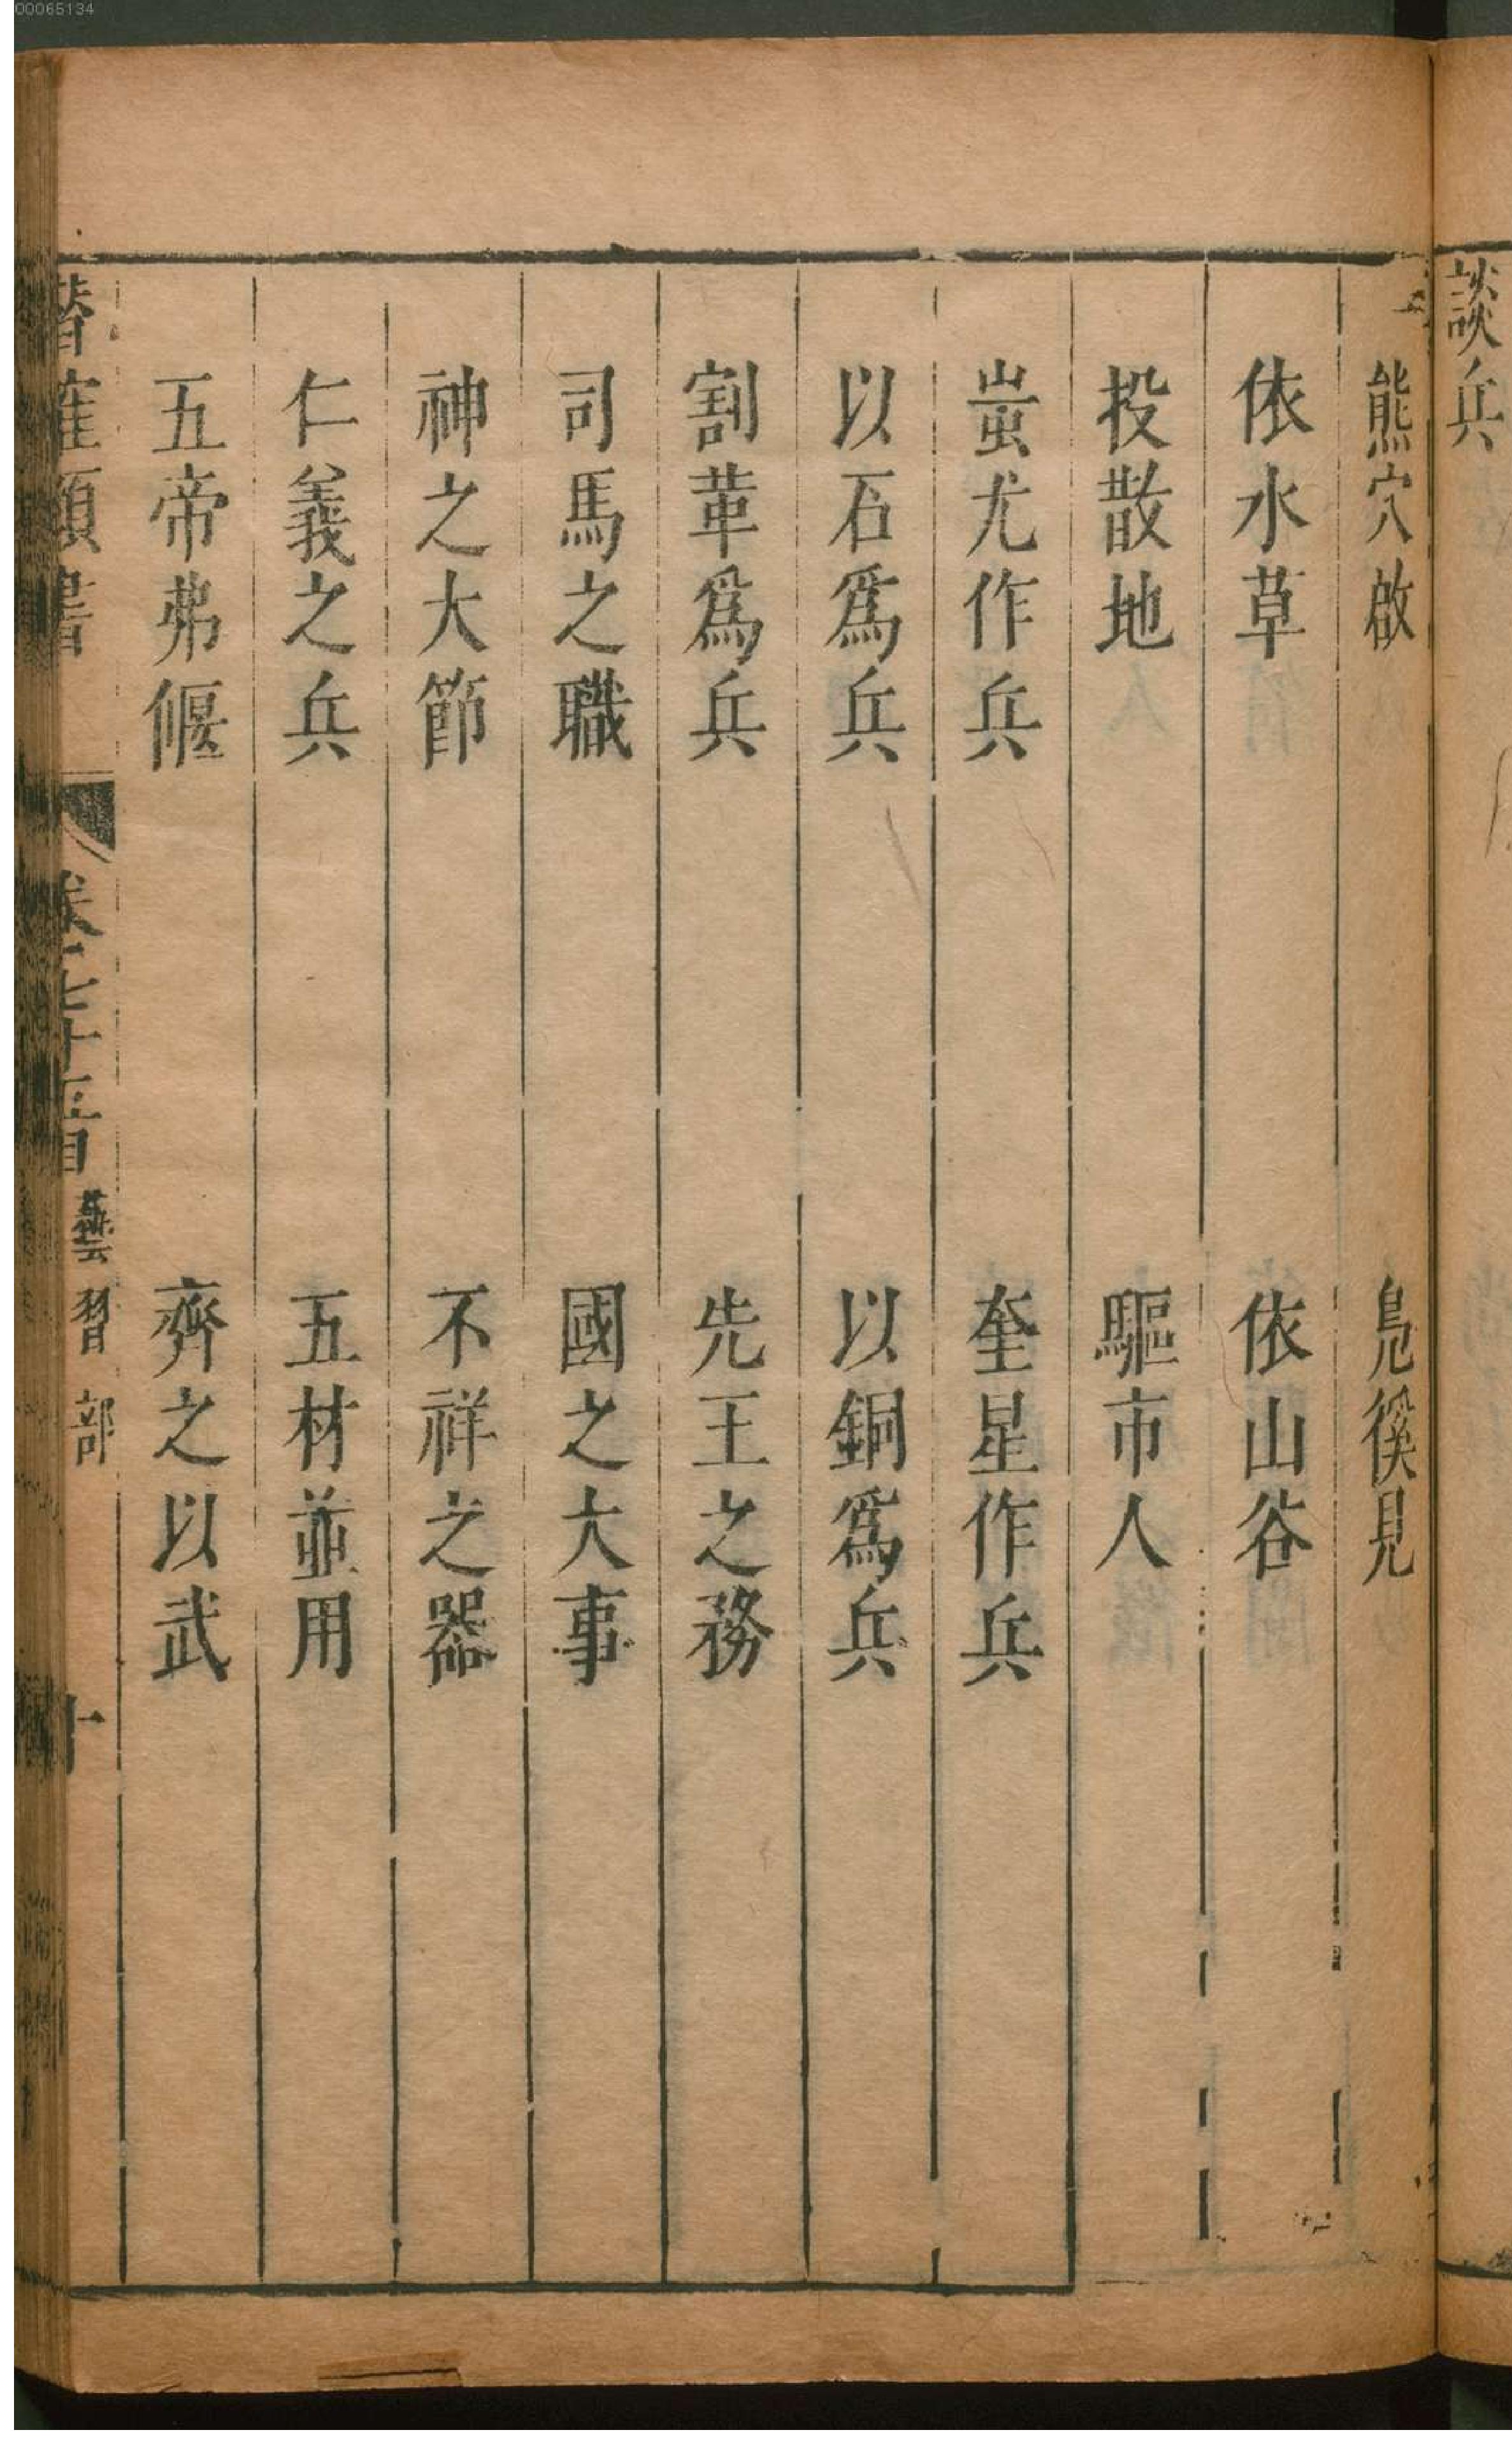 00065134
談兵
熊穴啟 鳧徯見
依水草 依山谷
投散地 驅市人
蚩尤作兵 奎星作兵
以石爲兵 以銅爲兵
割革爲兵 先王之務
司馬之職 國之大事
神之大節 不祥之器
仁義之兵 五材並用
五帝弗偃 齊之以武
藝習部 十